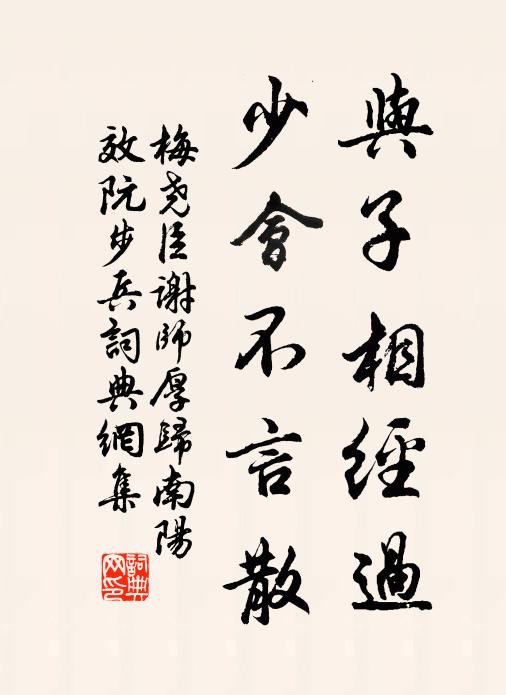 與子相經過
少會不言散
梅堯臣謝師厚歸南陽
效阮步兵詞典網集
詞典
网印